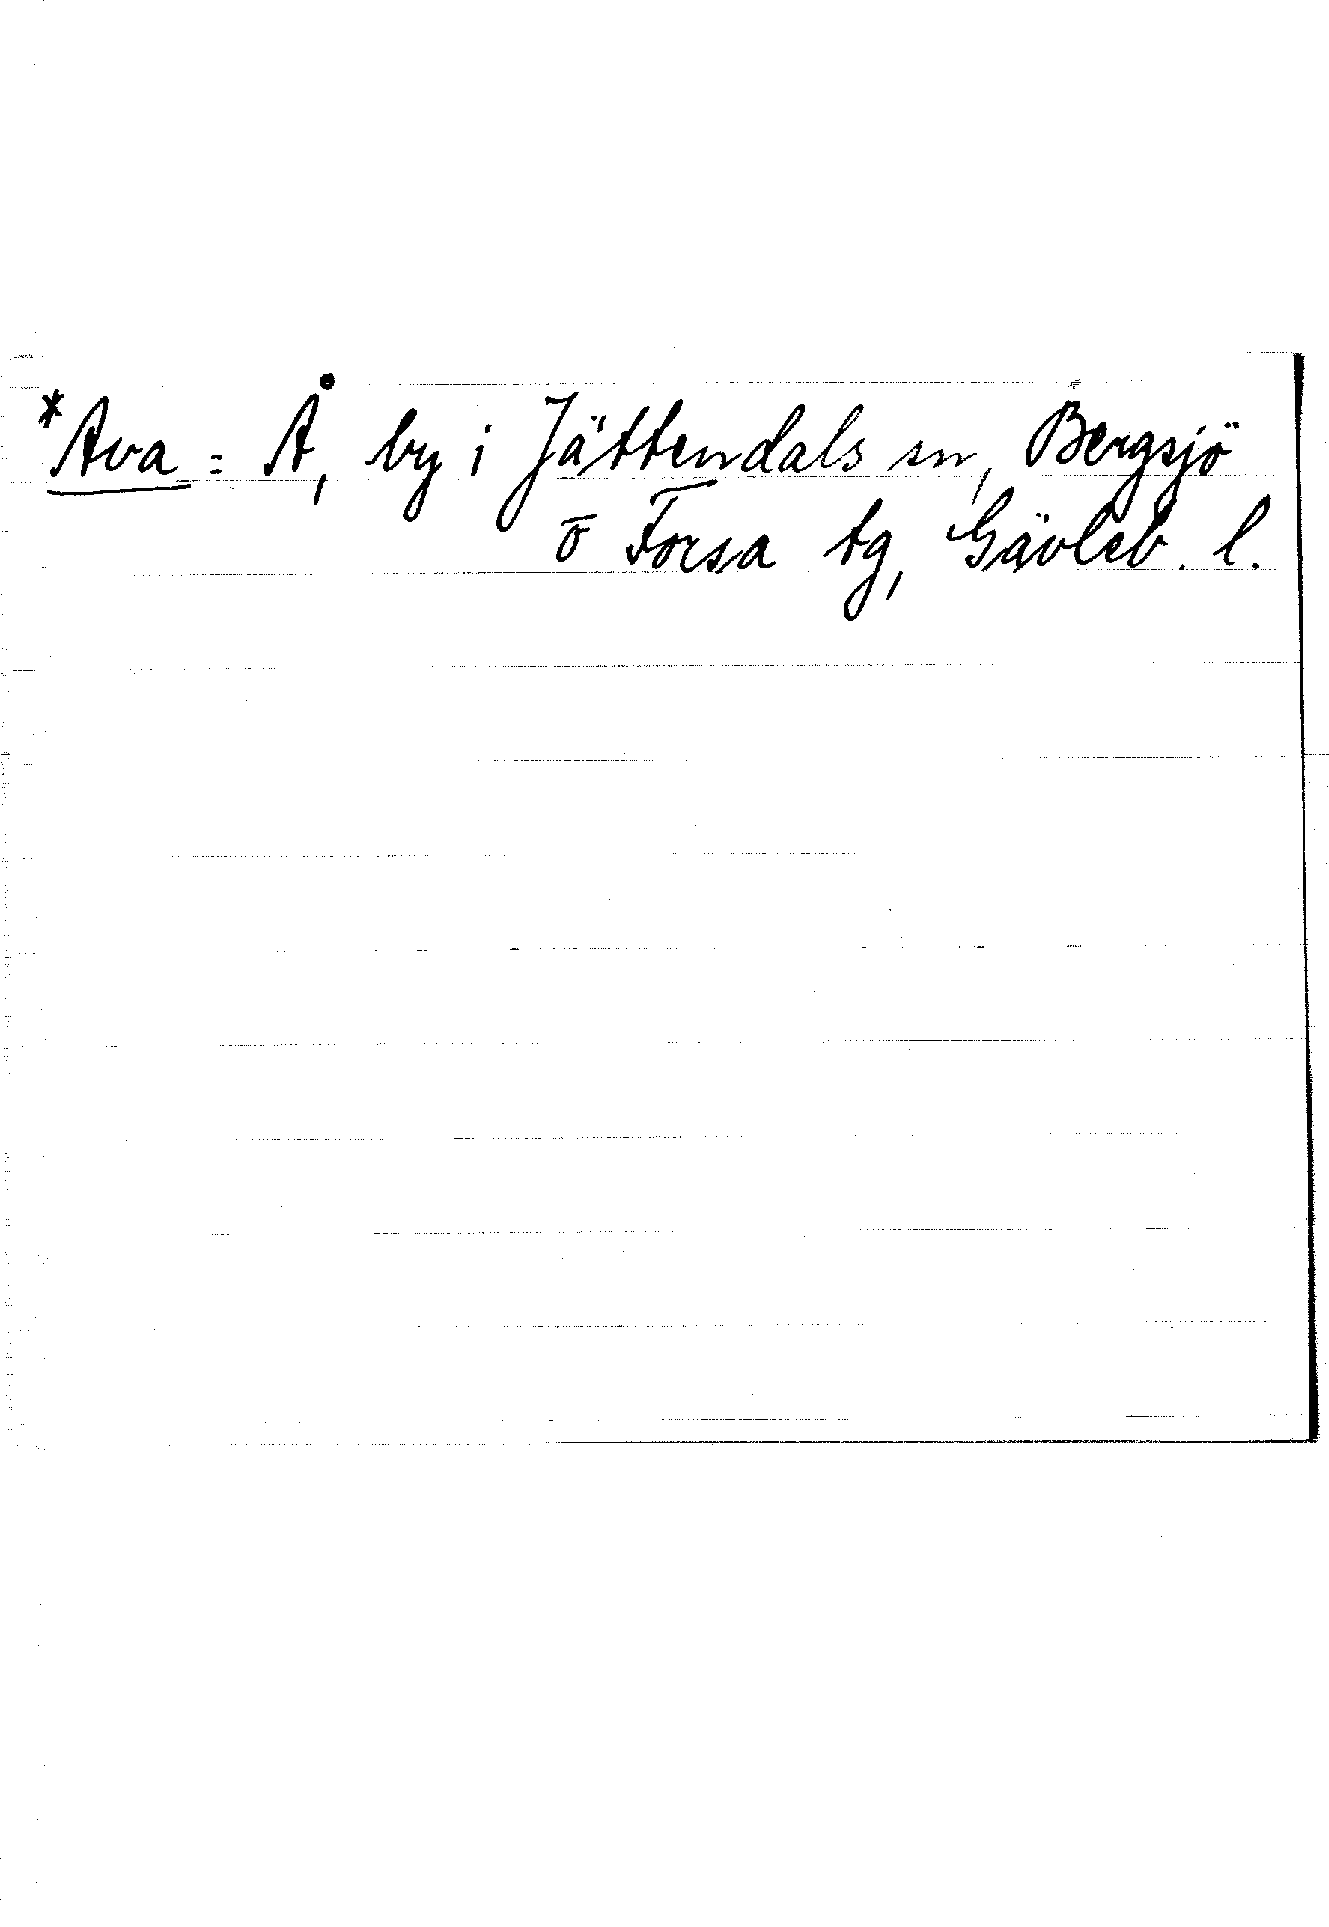 *Ava = Å, by i Jättendals sn, Bergsjö
o Forsa tg, Gävleb. l.